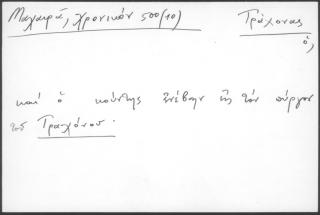 Μαχαιρά, χρονικόν 500 (10)
Τράχονας
ὁ,
καί ὁ κούντης ἐνέβην εἰς τόν πύργον
τοῦ Τραχόνου.